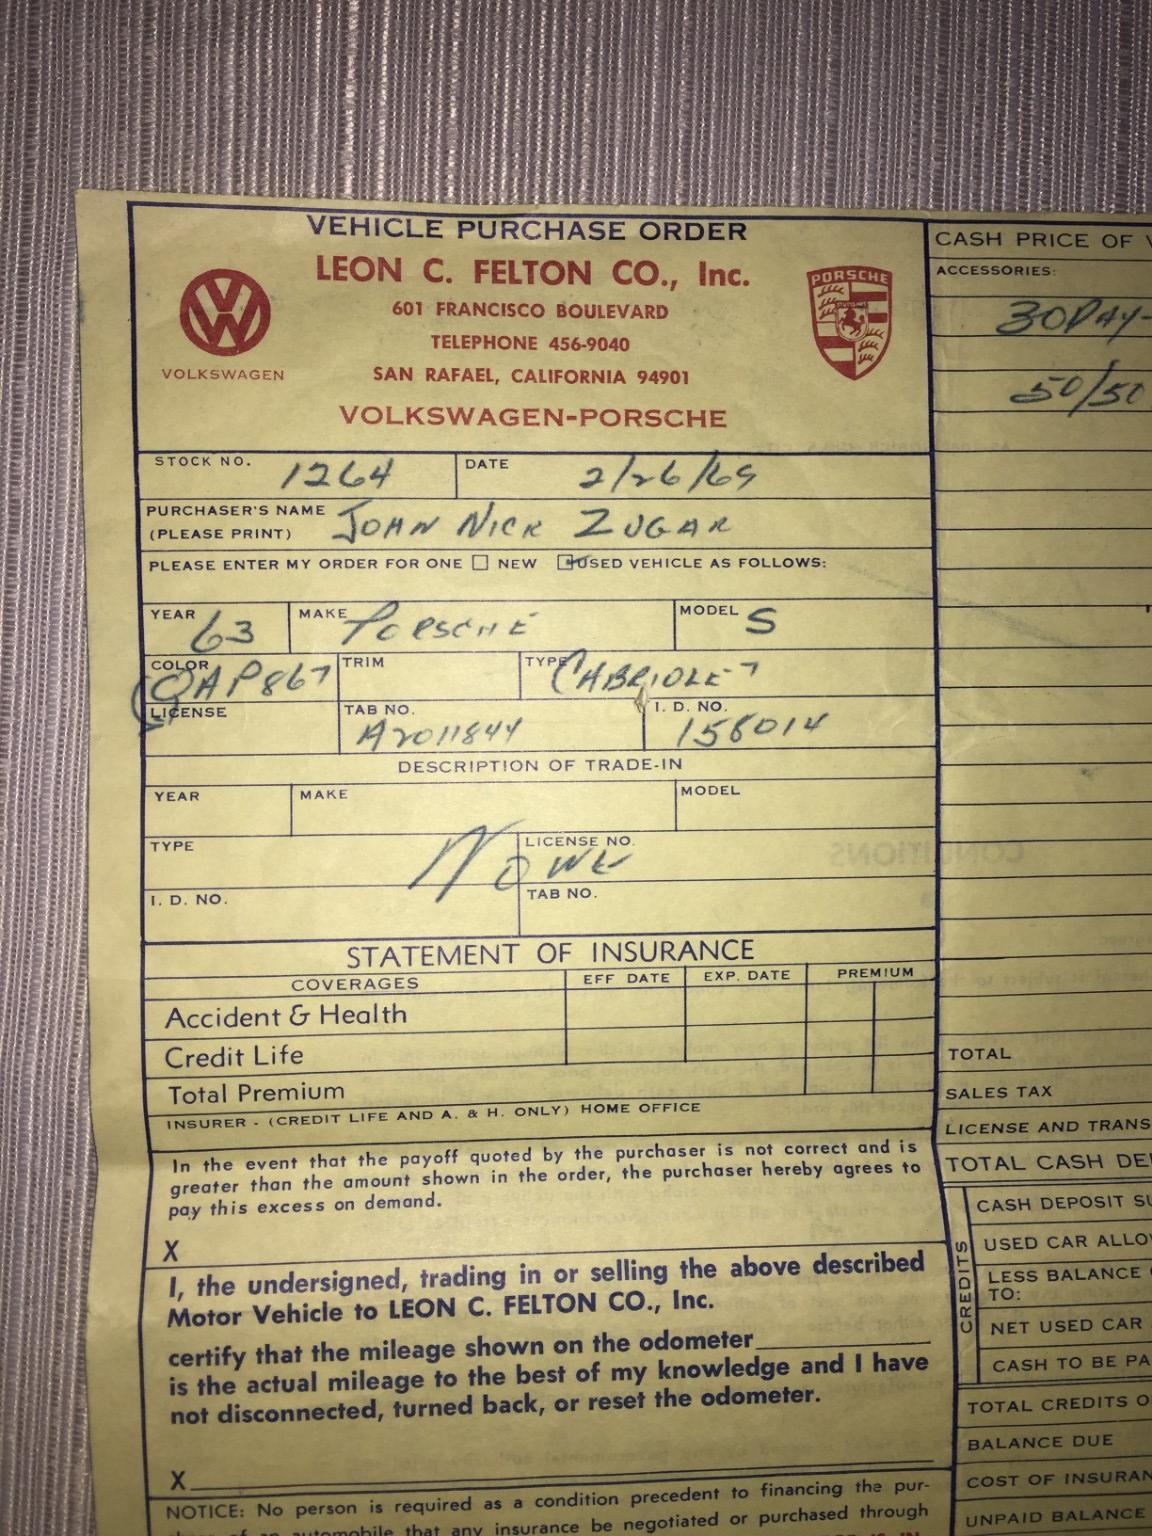 VEHICLE PURCHASE ORDER
LEON C. FELTON CO., Inc.
601 FRANCISCO BOULEVARD
TELEPHONE 456-9040
SAN RAFAEL, CALIFORNIA 94901
VOLKSWAGEN-PORSCHE
VOLKSWAGEN
PORSCHE
STOCK NO. 1264 DATE 2/26/69
PURCHASER'S NAME
(PLEASE PRINT) JOHN NICK ZUGAR
PLEASE ENTER MY ORDER FOR ONE NEW USED VEHICLE AS FOLLOWS:
YEAR 63 MAKE PORSCHE MODEL S
COLOR OAP867 TRIM TYPE CABRIOLET
LICENSE TAB NO. A2011844 I. D. NO. 158014
DESCRIPTION OF TRADE-IN
YEAR MAKE MODEL
TYPE LICENSE NO.
NONE
I. D. NO. TAB NO.
STATEMENT OF INSURANCE
COVERAGES EFF DATE EXP. DATE PREMIUM
Accident & Health
Credit Life
Total Premium
INSURER - (CREDIT LIFE AND A. & H. ONLY) HOME OFFICE
In the event that the payoff quoted by the purchaser is not correct and is
greater than the amount shown in the order, the purchaser hereby agrees to
pay this excess on demand.
X
I, the undersigned, trading in or selling the above described
Motor Vehicle to LEON C. FELTON CO., Inc.
certify that the mileage shown on the odometer
is the actual mileage to the best of my knowledge and I have
not disconnected, turned back, or reset the odometer.
X
NOTICE: No person is required as a condition precedent to financing the pur-
of an automobile that any insurance be negotiated or purchased through
CASH PRICE OF
ACCESSORIES:
30 DAY-
50/50
TOTAL
SALES TAX
LICENSE AND TRANS
TOTAL CASH DE
CREDITS
CASH DEPOSIT SU
USED CAR ALLO
LESS BALANCE
TO:
NET USED CAR
CASH TO BE PA
TOTAL CREDITS O
BALANCE DUE
COST OF INSURAN
UNPAID BALANCE